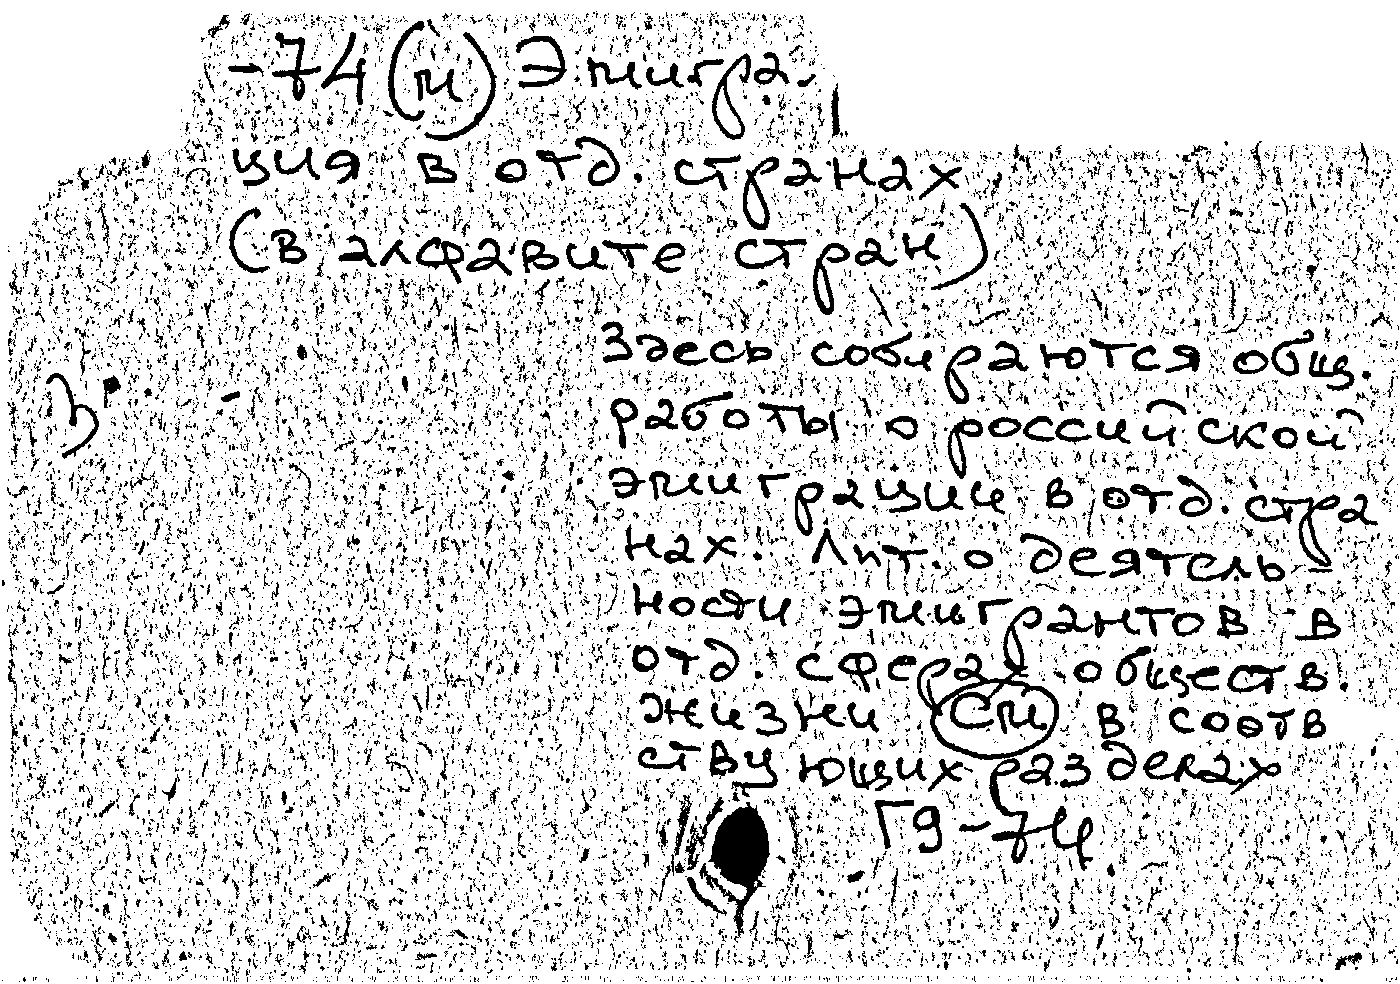 -74(м) Эмигра-
ция в отд. странах
(в алфавите стран)
Здесь собираются общ.
работы о российской
эмиграции в отд. стра
нах. Лит. о деятель
ности эмигрантов в
отд. сферах обществ.
жизни См в соотв
ствующих разделах
Г9-74